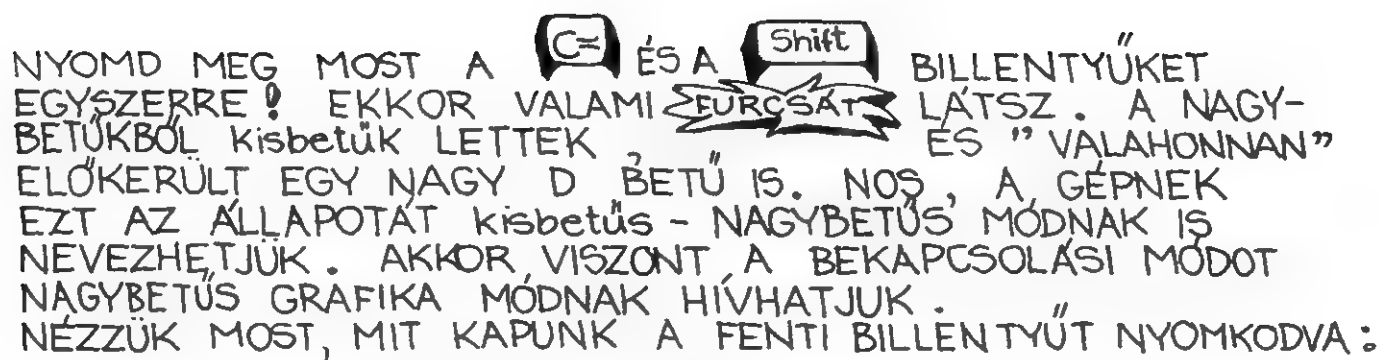 NYOMD MEG MOST A C= ÉS A Shift BILLENTYŰKET
EGYSZERRE! EKKOR VALAMI FURCSÁT LÁTSZ. A NAGY-
BETŰKBŐL kisbetűk LETTEK ÉS "VALAHONNAN"
ELŐKERÜLT EGY NAGY D BETŰ IS. NOS, A GÉPNEK
EZT AZ ÁLLAPOTÁT kisbetűs - NAGYBETŰS MÓDNAK IS
NEVEZHETJÜK. AKKOR VISZONT A BEKAPCSOLÁSI MÓDOT
NAGYBETŰS GRAFIKA MÓDNAK HÍVHATJUK.
NÉZZÜK MOST, MIT KAPUNK A FENTI BILLENTYŰT NYOMKODVA: